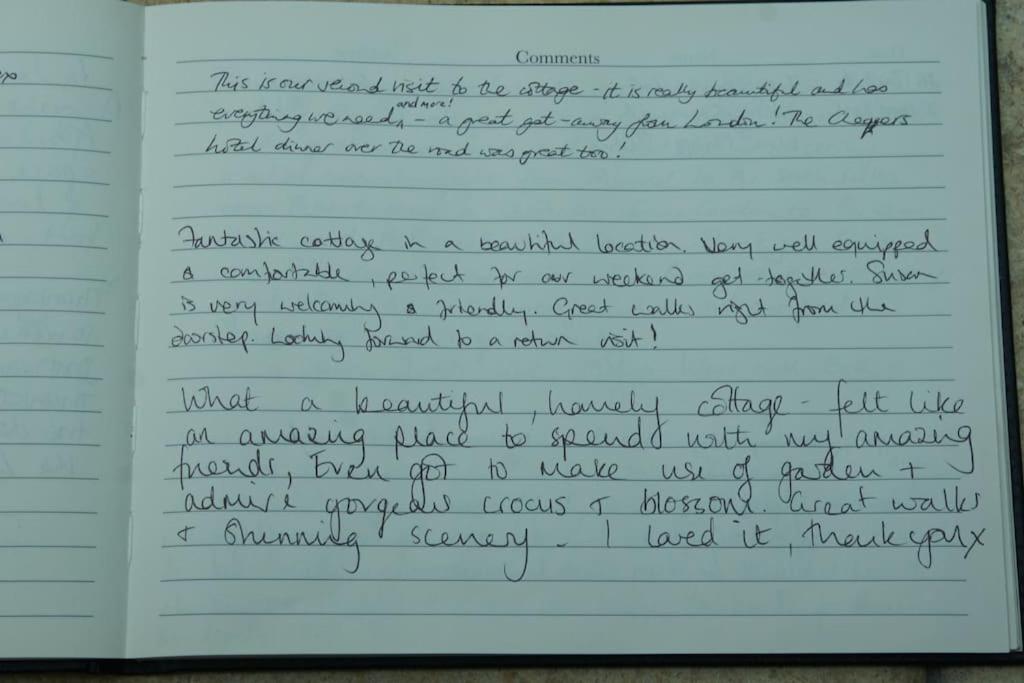 Comments
This is our second visit to the cottage - it is really beautiful and has
and more!
everything we need - a great get-away from London! The
hotel dinner over the road was great too!
Fantastic cottage in a beautiful location. Very well equipped
& comfortable, perfect for our weekend get-together. Susan
is very welcoming & friendly. Great walks right from the
doorstep. Looking forward to a return visit!
What a beautiful, homely cottage - felt like
an amazing place to spend with my amazing
friends, Even got to make use of garden +
admire gorgeous crocus + blossom. Great walks
+ stunning scenery - I loved it, thank you x